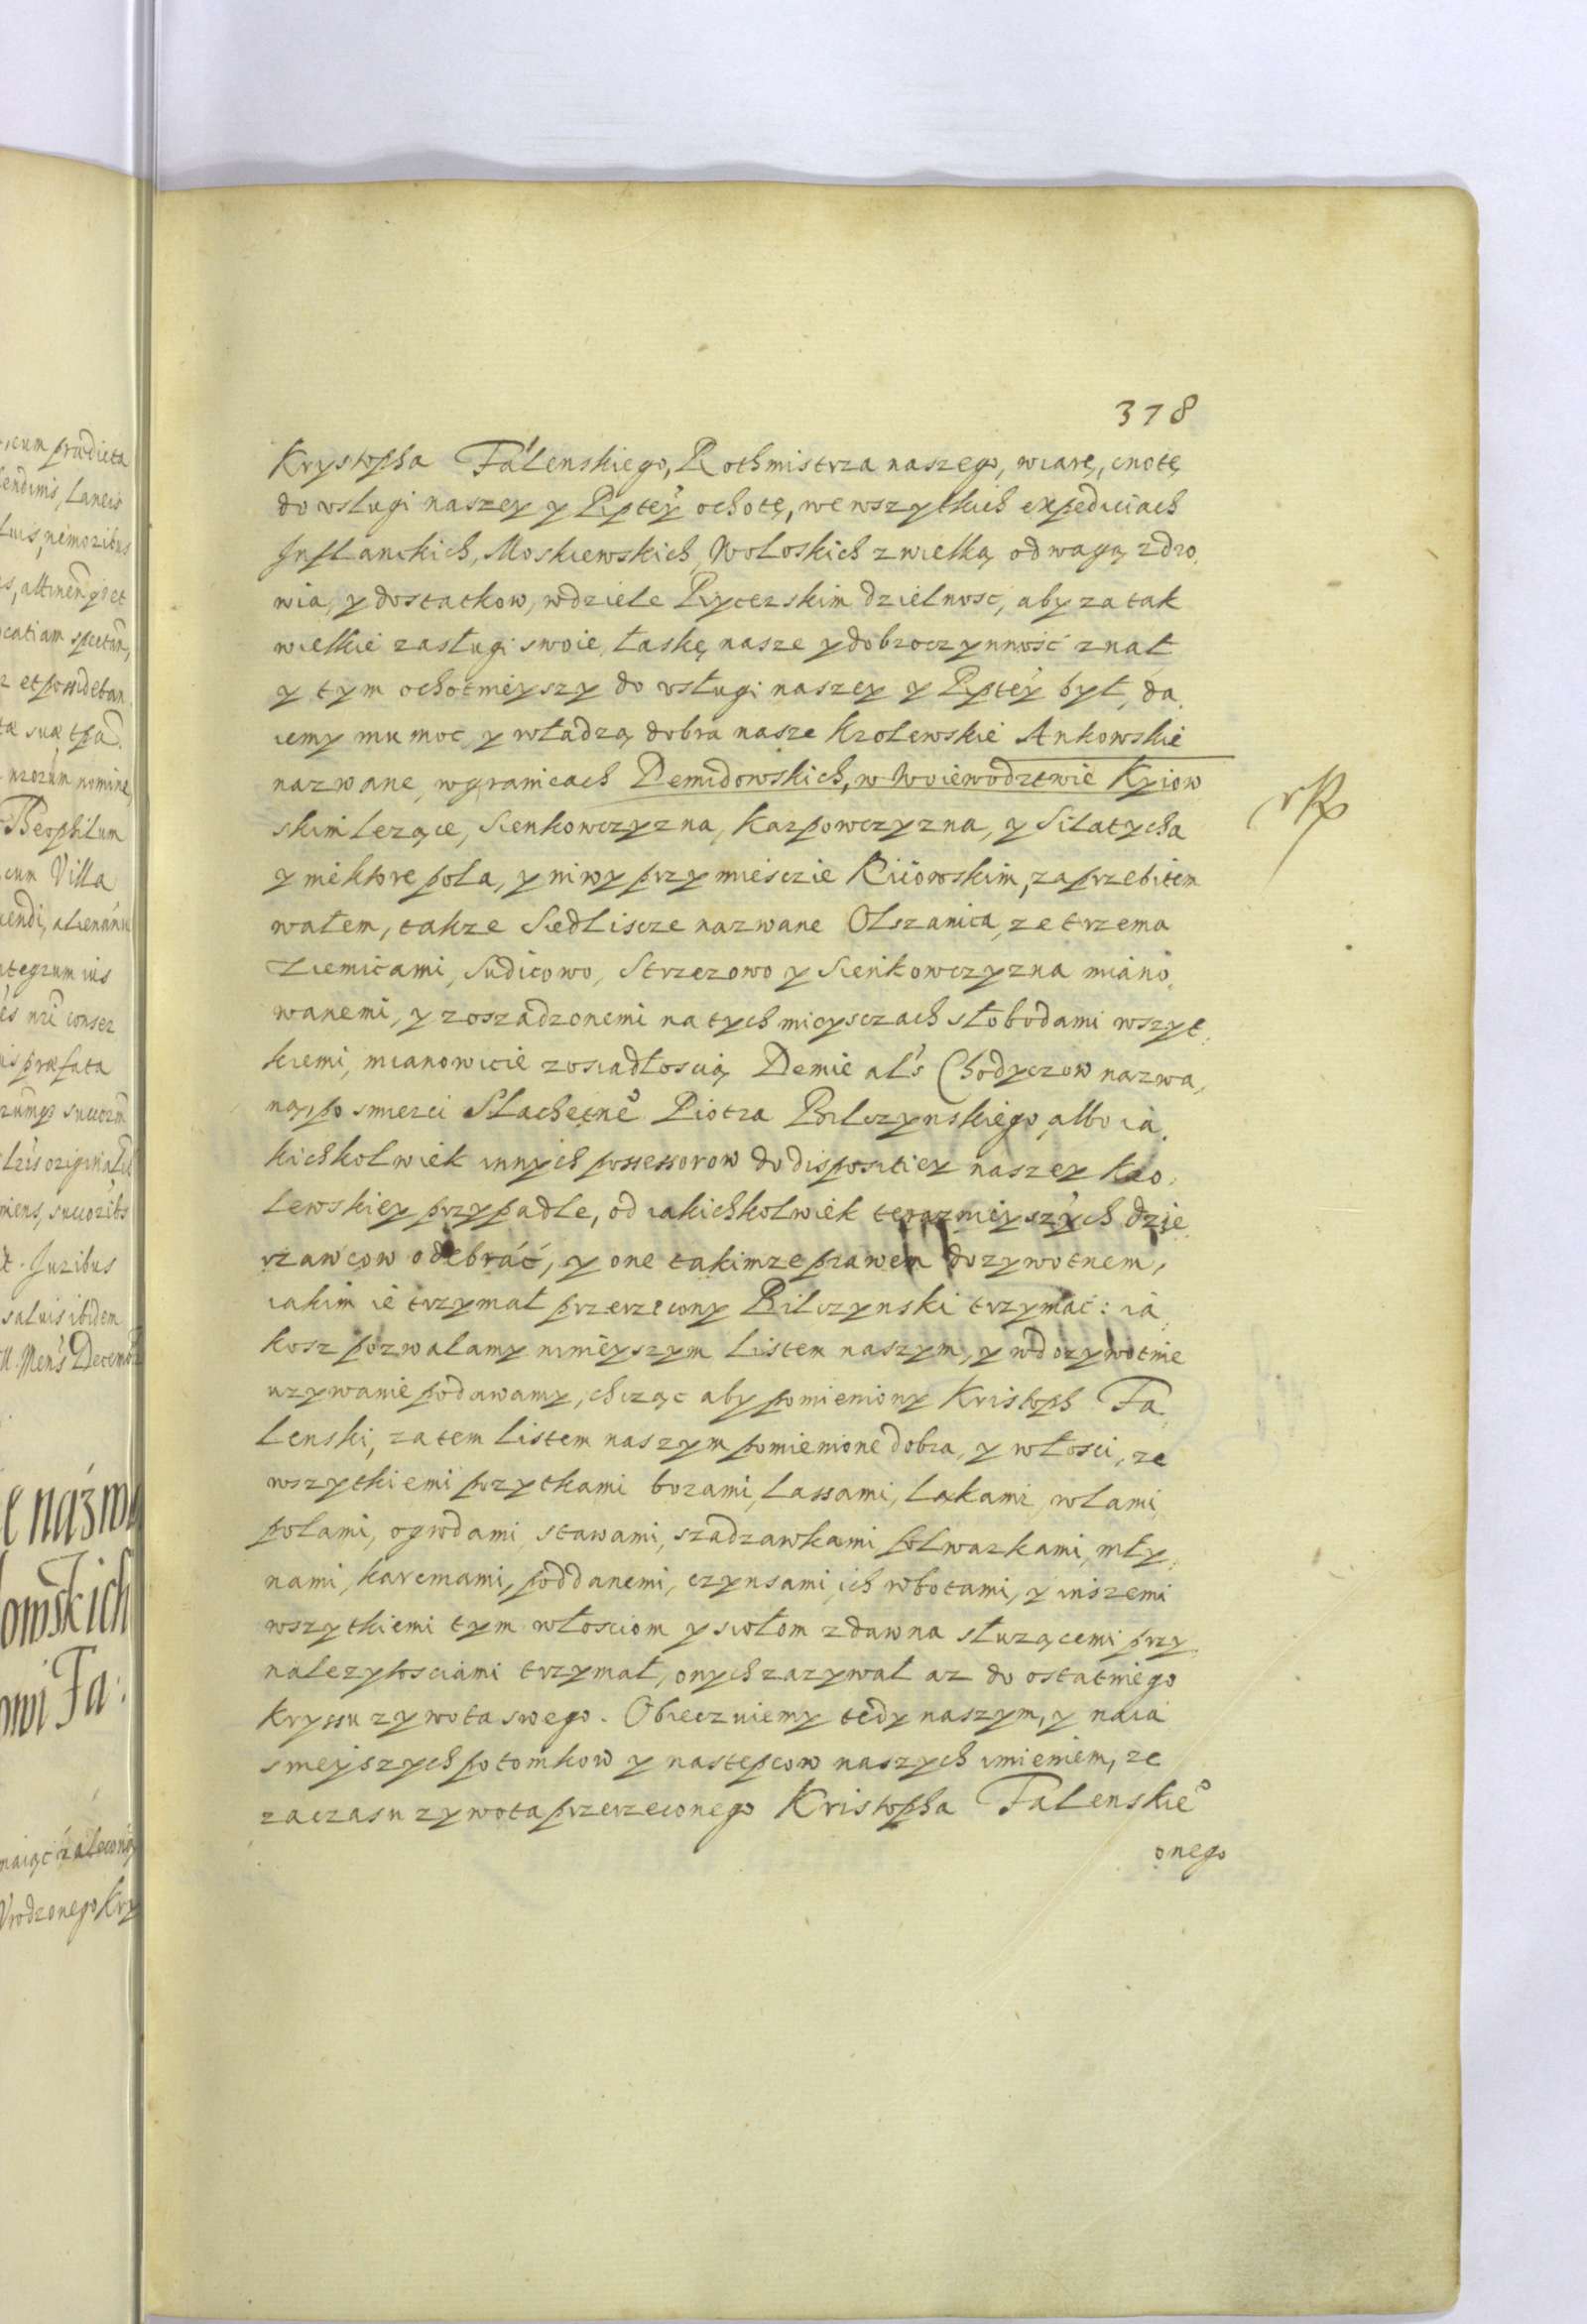 378
Krystopha Fálenskiego, Rothmistrza naszego, wiarę, cnotę
do vsługi naszey y Rptey ochotę, we wszytkich expediciach
Inflanckich, Moskiewskich, Wołoskich z wielką odwagą zdro,
wia, y dostatkow, w dziele Rycerskim dzielnosc, aby za tak
wielkie zasługi swoie, łaskę nasze y dobroczynność znał
y tym ochotnieyszy do vsługi naszey y Rptey był, da,
iemy mu moc y władzą dobra nasze krolewskie Ankowskie
nazwane, w granicach Demidowskich, w Woiewodztwie Kyiow
skim lezące, Sienkowczyzna, Karpowczyzna, y Silatycha
y niektore pola, y niwy przy miesczie Kiiowskim, za przebitem
wałem, takze Siedliscze nazwane Olszanica, ze trzema
Ziemicami, Sudicowo, Strzezowo y Sienkowczyzna miano,
wanemi, y z oszadzonemi na tych mieysczach słobodami wszyt,
kiemi, mianowicie z osiadłoscią Demie al's Chodyczow nazwa,
ną, po smierci Slachetne° Piotra Bilczynskiego, albo ia,
kichkolwiek innych possessorow do dispositiey naszey kro,
lewskiey przypadłe, od iakichkolwiek teraznieyszych dzie
rzawcow odebráć, y one takimze prawem dozywotnem,
iakim ie trzymał przerzeczony Bilczynski trzymać: ia
kosz pozwalamy ninieyszym Listem naszym, y w dozywotnie
uzywanie podawamy, chcząc aby pomieniony Kristoph Fa,
lenski, za tem listem naszym pomienione dobra, y włosci, ze
wszytkiemi pozytkami borami, lassami, łąkami, rolami,
polami, ogrodami, stawami, szadzawkami folwarkami, mły,
nami, karcmami, poddanemi, czynsami, ich robotami, y inszemi
wszytkiemi tym włosciom y siołom zdawna służącemi przy
nalezytosciami trzymał, onych zazywał az do ostatniego
kryssu zywota swego. Obieczuiemy tedy naszym, y naia
snieyszych potomkow y nastepcow naszych imieniem, ze
za czasu zywota przerzeconego Kristopha Falenskie°
onego